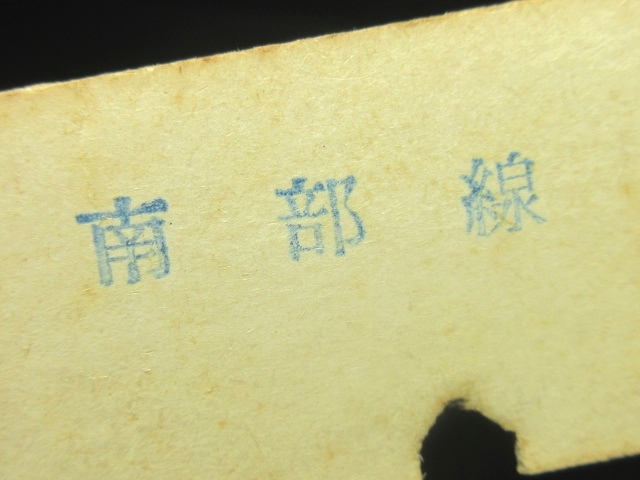 南部線